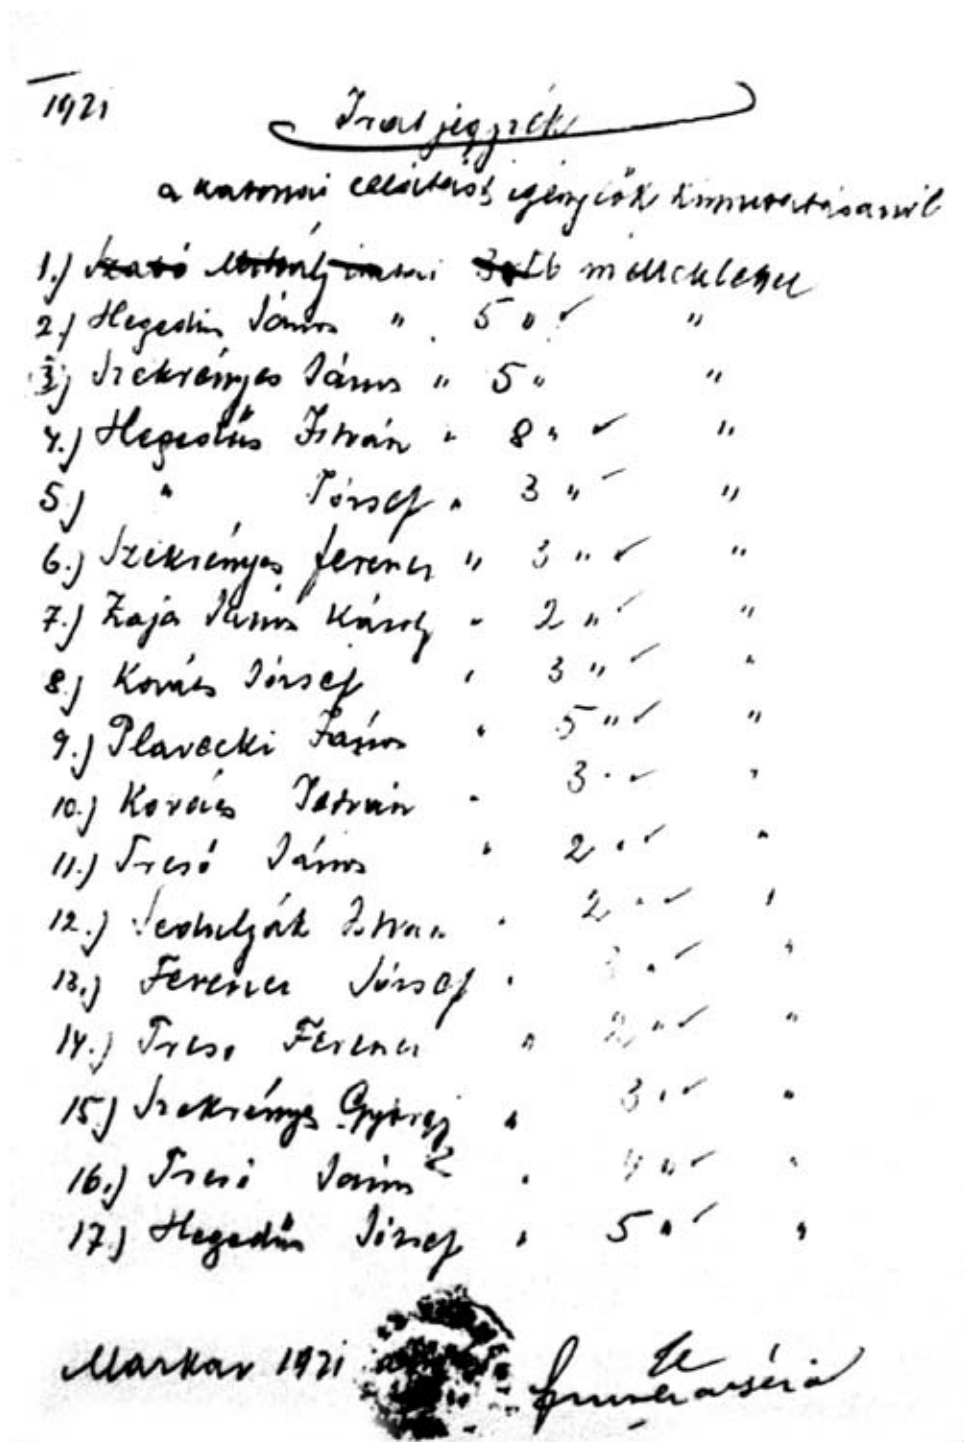 1921
Irat jegyzék
a katonai ellátást igénylők kimutatásáról
1.) Szabó Mihály iratai 3 db melléklettel
2.) Hegedüs János " 5 " ✓ "
3.) Szekrényes János " 5 " "
4.) Hegedűs István " 8 " ✓ "
5.) " József " 3 " ✓ "
6.) Szekrényes Ferencz " 3 " ✓ "
7.) Zaja János Károly " 2 " ✓ "
8.) Kovács József " 3 " ✓ "
9.) Plavecki János " 5 " ✓ "
10.) Kovács István " 3 " ✓ "
11.) Tresó János " 2 " ✓ "
12.) István " 2 " ✓ "
13.) Ferencz József " 3 " ✓ "
14.) Treso Ferencz " 2 " ✓ "
15.) Szekrényes György " 3 " ✓ "
16.) Tresó János 2 " 4 " ✓ "
17.) Hegedűs József " 5 " ✓ "
Markas 1921